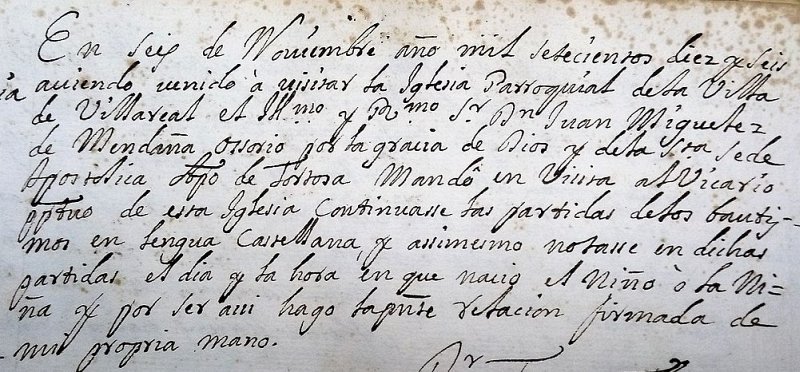 En seis de Noviembre año mil setecientos diez y seis
aviendo venido à visitar la Iglesia Parroquial de la Villa
de Villareal el Ill.mo y R.mo Sr. Dn Juan Miguelez
de Mendaña Ossorio por la gracia de Dios y de la Sta Sede
Apostolica Obpo de Tortosa Mandô en Visita al Vicario
pptuo de esta Iglesia Continuasse las partidas de los bautis-
mos en lengua Castellana, y assimesmo notasse en dichas
partidas el dia y la hora en que nacio el Niño ò la Ni=
ña y por ser aui hago la pnte relacion firmada de
mi propria mano.